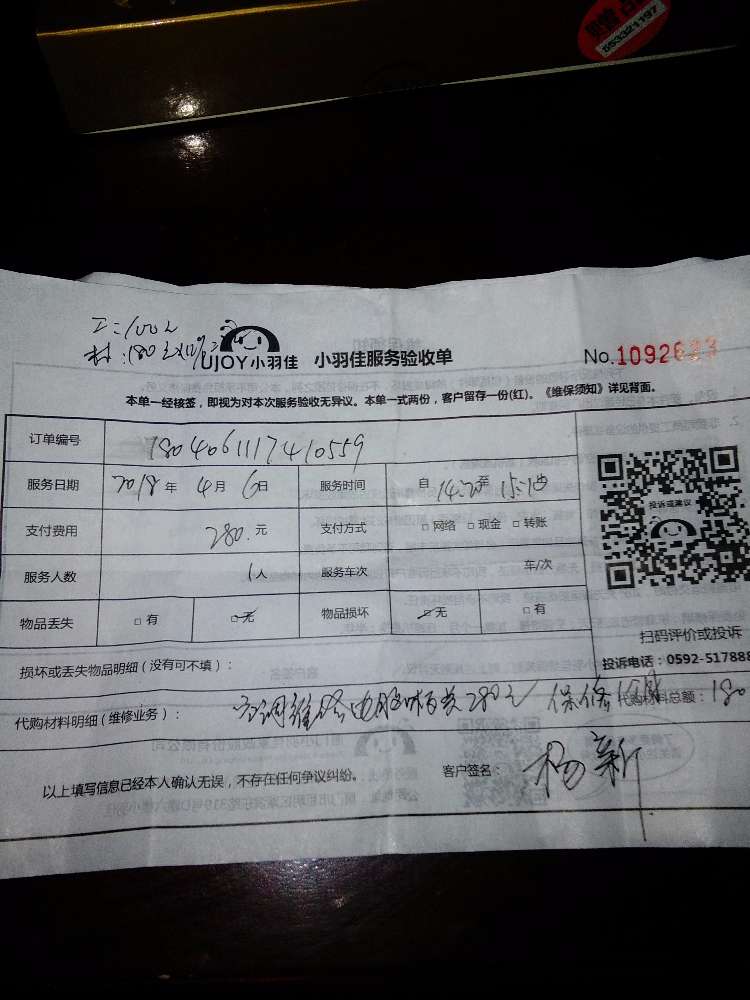 553321197
工:100元
材:180元
UJOY小羽佳 小羽佳服务验收单 No.1092623
本单一经核签，即视为对本次服务验收无异议。本单一式两份，客户留存一份(红)。《维保须知》详见背面。
订单编号 1804061117410559
服务日期 2018年 4月 6日 服务时间 自 14:20至 15:10
支付费用 280.元 支付方式 □网络 □现金 □转账
服务人数 1人 服务车次 车/次
物品丢失 □有 □无 物品损坏 □无 □有
投诉或建议
扫码评价或投诉
投诉电话：0592-517888
损坏或丢失物品明细（没有可不填）：
代购材料明细（维修业务）： 空调维修电脑板共280元 保修 代购材料总额：180
以上填写信息已经本人确认无误，不存在任何争议纠纷。 客户签名： 杨新